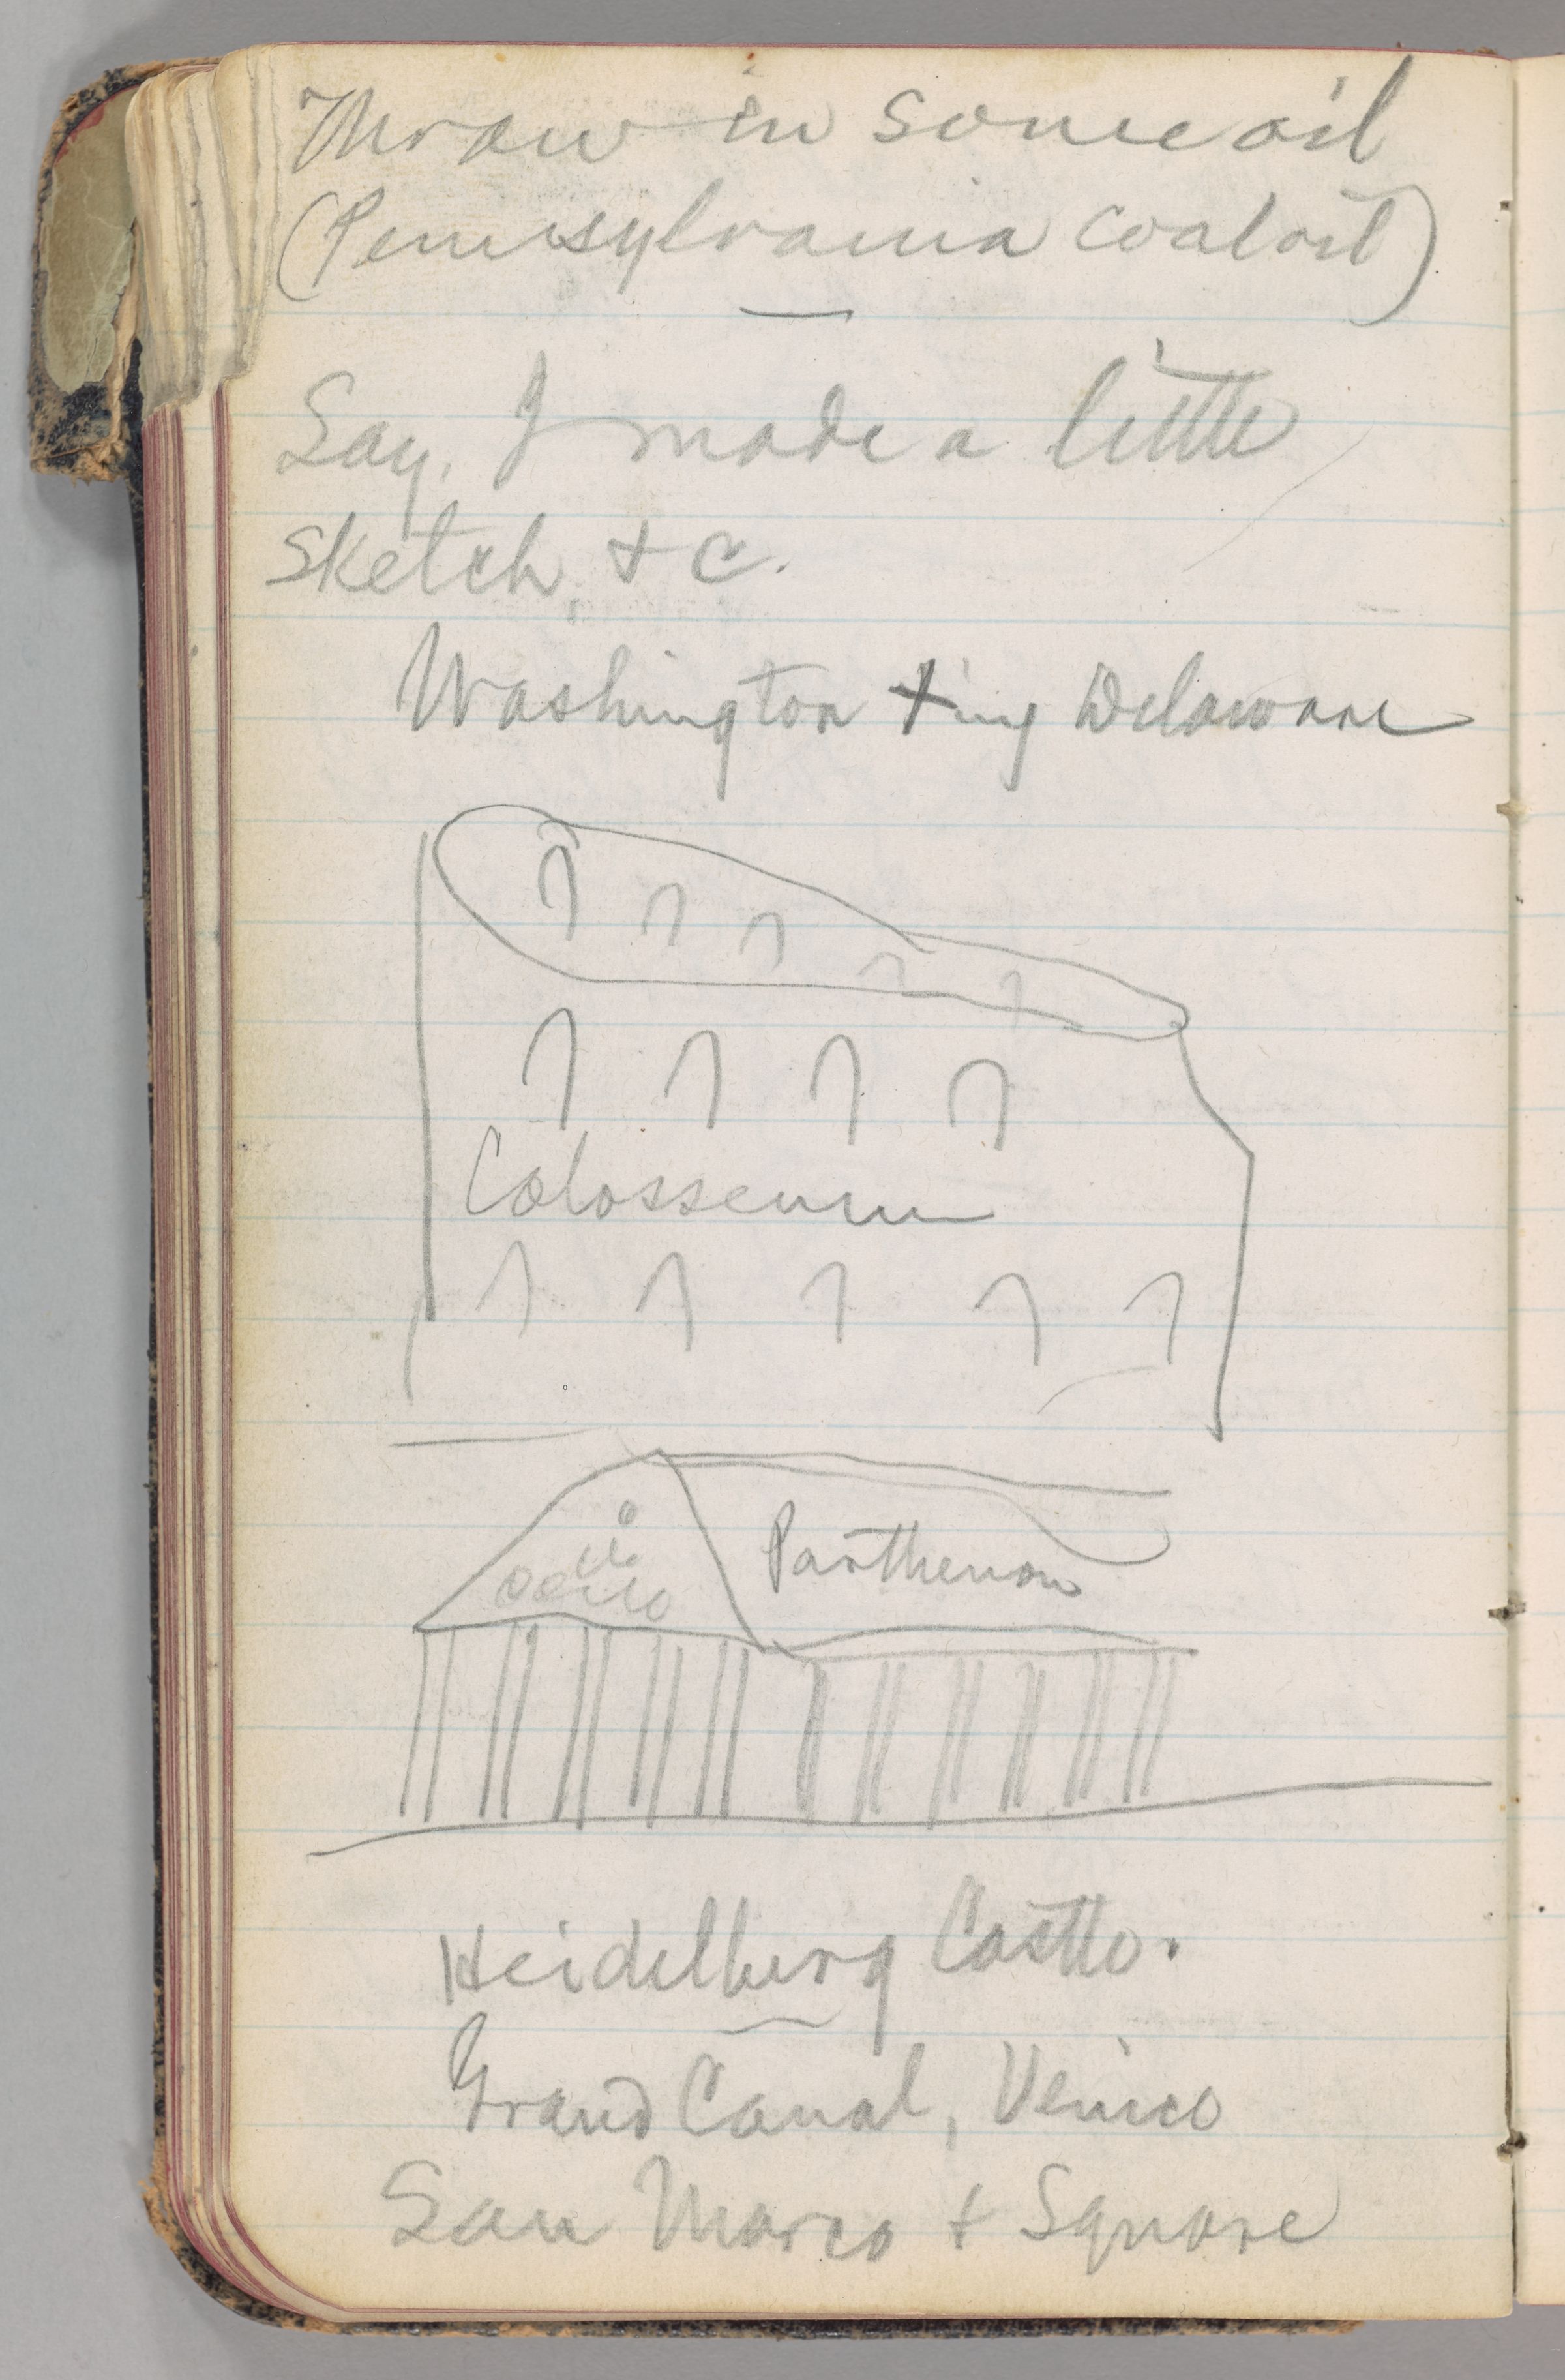 Throw in some oil
(Pennsylvania coal oil)
Say, I made a little
sketch, & c.
Washington +ing Delaware
Colosseum
Parthenon
Heidelberg Castle.
Grand Canal, Venice
San Marco & Square